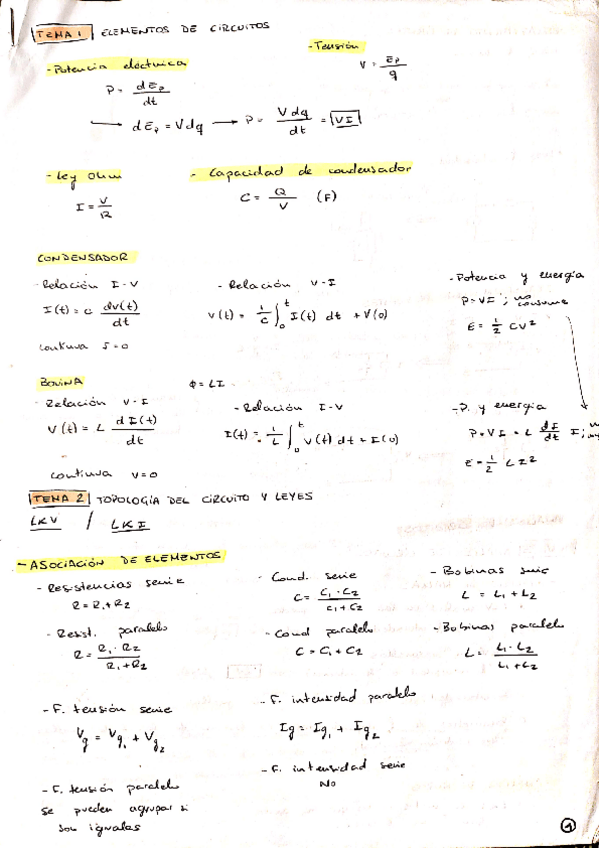 TEMA 1 ELEMENTOS DE CIRCUITOS
- Potencia eléctrica
P = dEp / dt
→ dEp = Vdq → P = Vdq / dt = VI
- Tensión
V = Ep / q
- Ley Ohm
I = V / R
- Capacidad de condensador
C = Q / V (F)
CONDENSADOR
- Relación I-V
I(t) = C dV(t) / dt
continua I=0
- Relación V-I
V(t) = 1/C ∫₀ᵗ I(t) dt + V(0)
- Potencia y energía
P=VI ; no consume
E = 1/2 CV²
BOVINA
Φ = LI
- Relación V-I
V(t) = L dI(t) / dt
continua V=0
- Relación I-V
I(t) = 1/L ∫₀ᵗ V(t) dt + I(0)
- P. y energía
P=VI = L dI/dt I;
E = 1/2 LI²
TEMA 2 TOPOLOGÍA DEL CIRCUITO Y LEYES
LKV / LKI
- ASOCIACIÓN DE ELEMENTOS
- Resistencias serie
R = R1 + R2
- Cond. serie
C = C1 · C2 / C1 + C2
- Bobinas serie
L = L1 + L2
- Resist. paralelo
R = R1 · R2 / R1 + R2
- Cond paralelo
C = C1 + C2
- Bobinas paralelo
L = L1 · L2 / L1 + L2
- F. tensión serie
Vg = Vg1 + Vg2
- F. intensidad paralelo
Ig = Ig1 + Ig2
- F. tensión paralelo
se pueden agrupar si
son iguales
- F. intensidad serie
No
1